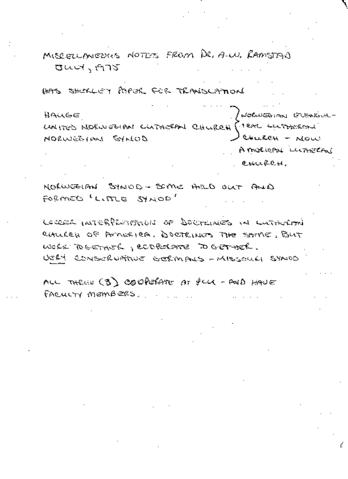 MISCELLANEOUS NOTES FROM DR. A.W. RAMSTAD
JULY, 1975
HAS SHURLEY PAPER FOR TRANSLATION
HAUGE
UNITED NORWEGIAN LUTHERAN CHURCH
NORWEGIAN SYNOD
NORWEGIAN EVANGEL-
ICAL LUTHERAN
CHURCH - NOW
AMERICAN LUTHERAN
CHURCH.
NORWEGIAN SYNOD - SOME HOLD OUT AND
FORMED 'LITTLE SYNOD'
INTERPRETATION OF DOCTRINES IN LUTHERAN
CHURCH OF AMERICA. DOCTRINES THE SAME, BUT
WORK TOGETHER, COOPERATE TOGETHER.
VERY CONSERVATIVE GERMANS - MISSOURI SYNOD
ALL THREE (3) COOPERATE AT PLU - AND HAVE
FACULTY MEMBERS.